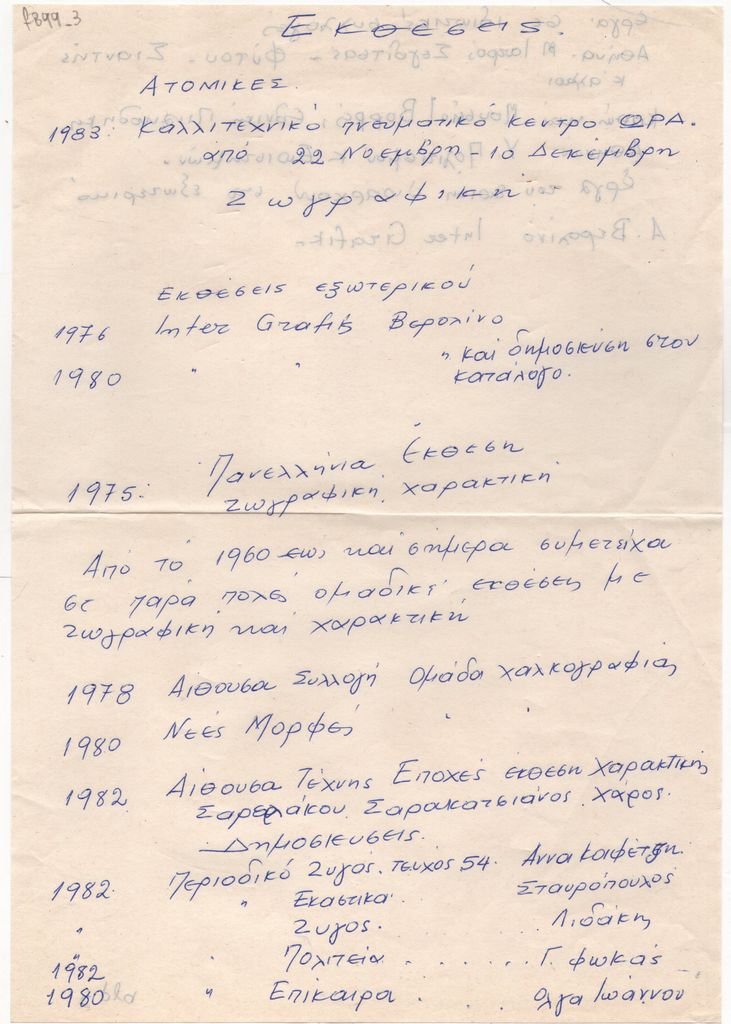 f899_3
Εκθεσεις.
Ατομικες.
1983: Καλλιτεχνικό πνευματικό κεντρο ΩΡΑ.
από 22 Νοεμβρη - 10 Δεκέμβρη
Ζωγραφικη
Εκθέσεις εξωτερικού
1976 Inter Grafik Βερολίνο
1980 " " " και δημοσιευση στον
κατάλογο.
1975: Πανελλήνια Εκθεση
ζωγραφική, χαρακτική
Από το 1960 εως και σήμερα συμετείχα
σε παρά πολές ομαδικές εκθέσεις με
ζωγραφική και χαρακτική
1978 Αίθουσα Συλλογή ομάδα χαλκογραφίας
1980 Νεές Μορφές " "
1982 Αίθουσα Τέχνης Εποχές έκθεση χαρακτικής
Σαρακατσιάνος, Χάρος.
Δημοσιευσεις.
1982. Περιοδικό Ζυγός. τευχος 54. Αννα Καφέτση.
" Εικαστικα. Σταυρόπουλος
" Ζυγος. . . . Λιδάκη
1982 " Πολιτεία . . . . . . Γ. Φωκάς
1980 " Επίκαιρα . . . Ολγα Ιωάννου